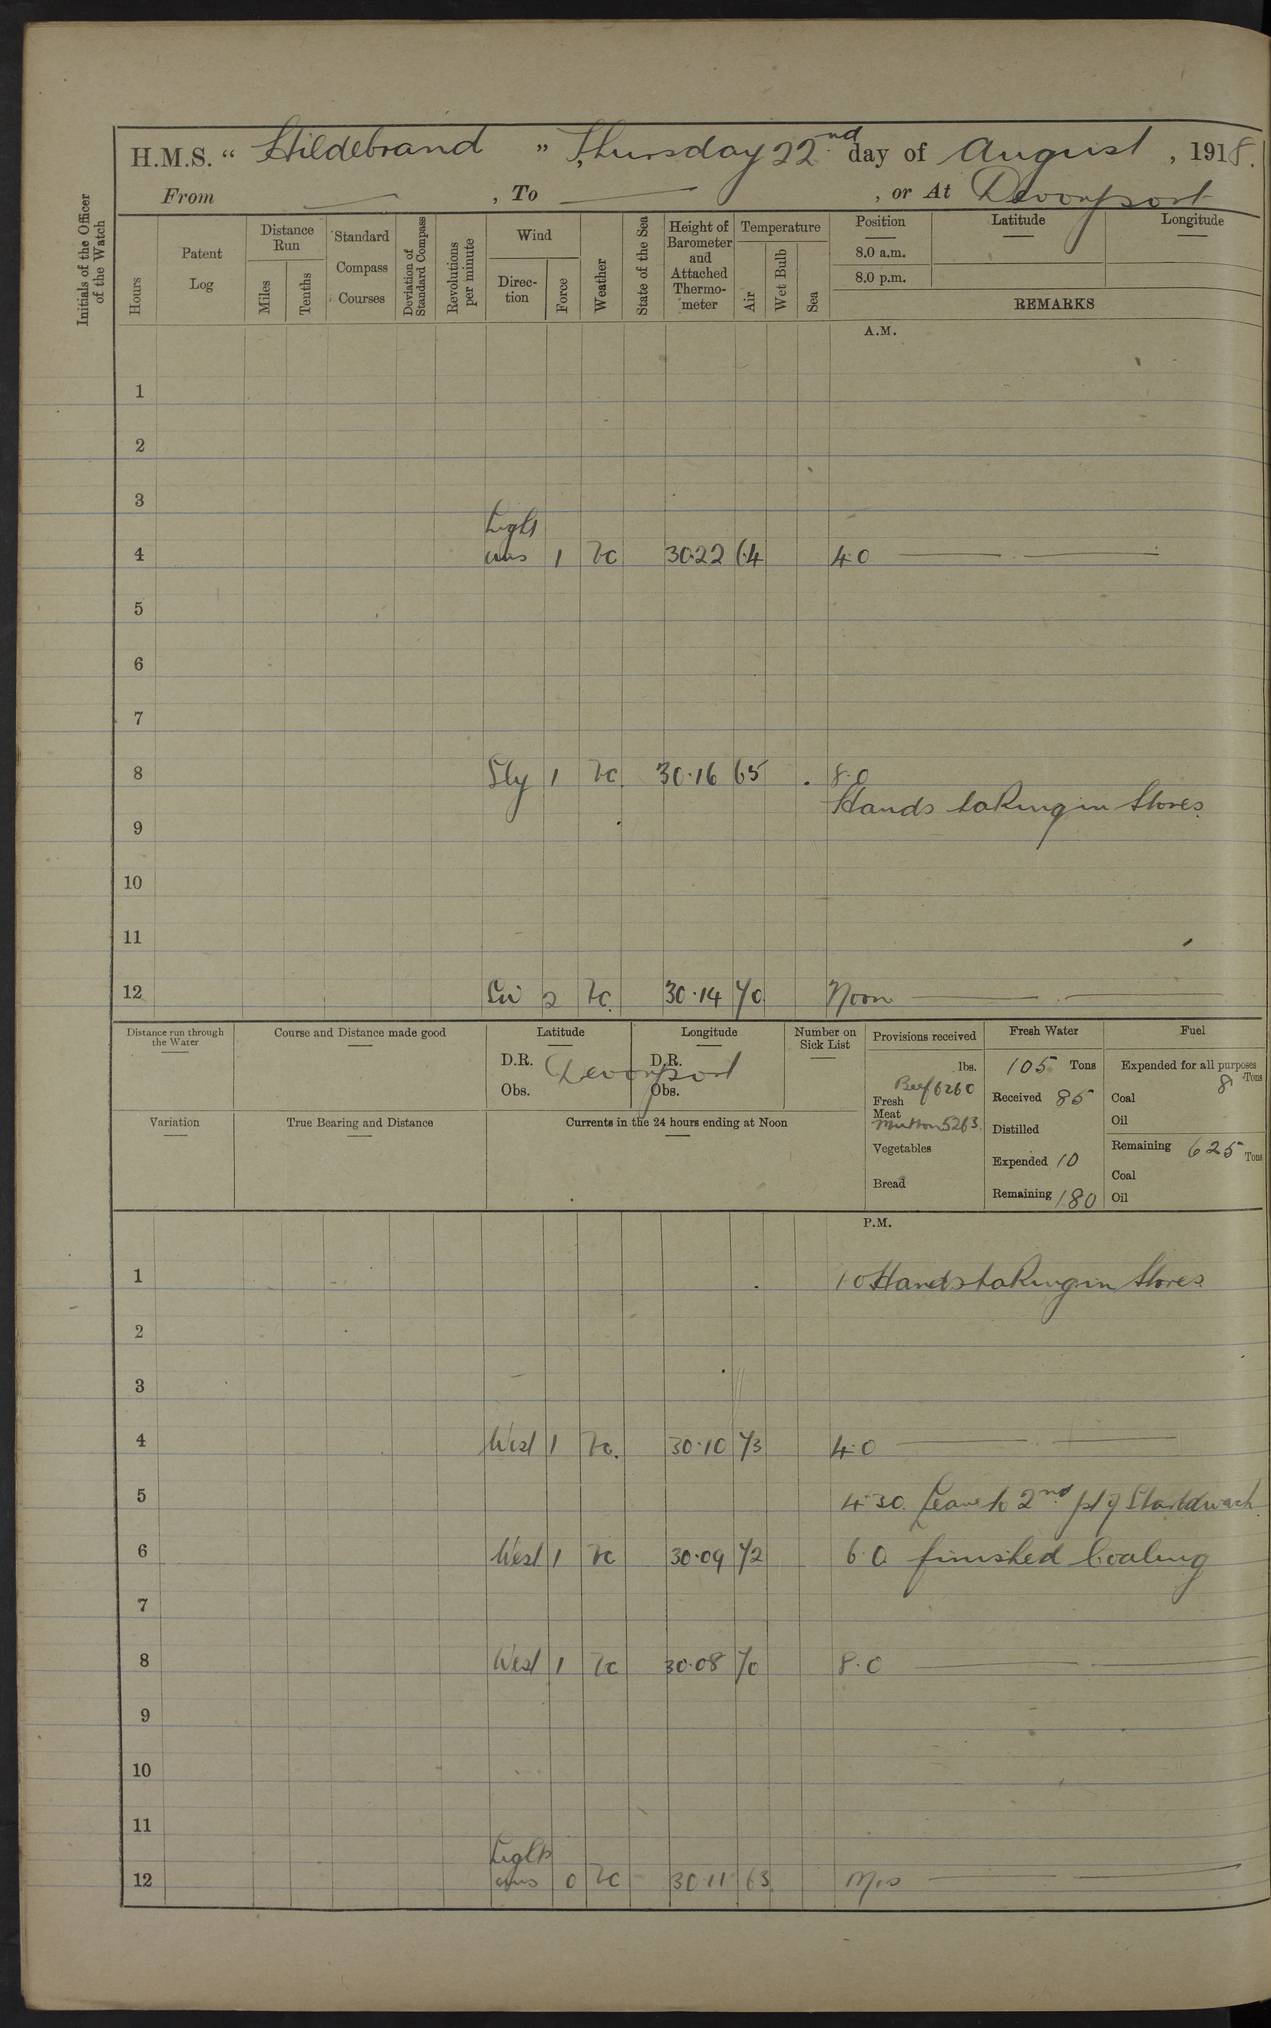 H.M.S. “ Hildebrand ” Thursday 22nd day of August , 1918.
From — , To — , or At Devonport
Initials of the Officer of the Watch
Hours
Patent Log
Distance Run
Miles
Tenths
Standard Compass Courses
Deviation of Standard Compass
Revolutions per minute
Wind
Direction
Force
Weather
State of the Sea
Height of Barometer and Attached Thermometer
Temperature
Air
Wet Bulb
Sea
Position
Latitude
Longitude
8.0 a.m.
8.0 p.m.
REMARKS
A.M.
1
2
3
Light
4 airs 1 bc 30.22 64 4.0 — —
5
6
7
8 Sly 1 bc 30.16 65 8.0
Hands taking in Stores.
9
10
11
12 SW 2 bc. 30.14 70 Noon — —
Distance run through the Water
Course and Distance made good
Latitude
D.R. Devonport
Obs.
Longitude
D.R.
Obs.
Number on Sick List
Provisions received
lbs.
Fresh Meat Beef 6260
Mutton 5263
Vegetables
Bread
Fresh Water
105 Tons
Received 85
Distilled
Expended 10
Remaining 180
Fuel
Expended for all purposes
8 Tons
Coal
Oil
Remaining 625 Tons
Coal
Oil
Variation
True Bearing and Distance
Currents in the 24 hours ending at Noon
P.M.
1 1 0 Hands taking in Stores
2
3
4 West 1 bc. 30.10 73 4.0 — —
5 4.30 Leave to 2nd pt of Starbd watch
6 West 1 bc 30.09 72 6.0 finished Coaling
7
8 West 1 bc 30.08 70 8.0 — —
9
10
11
Light
12 airs 0 bc 30.11 63 Mid — —